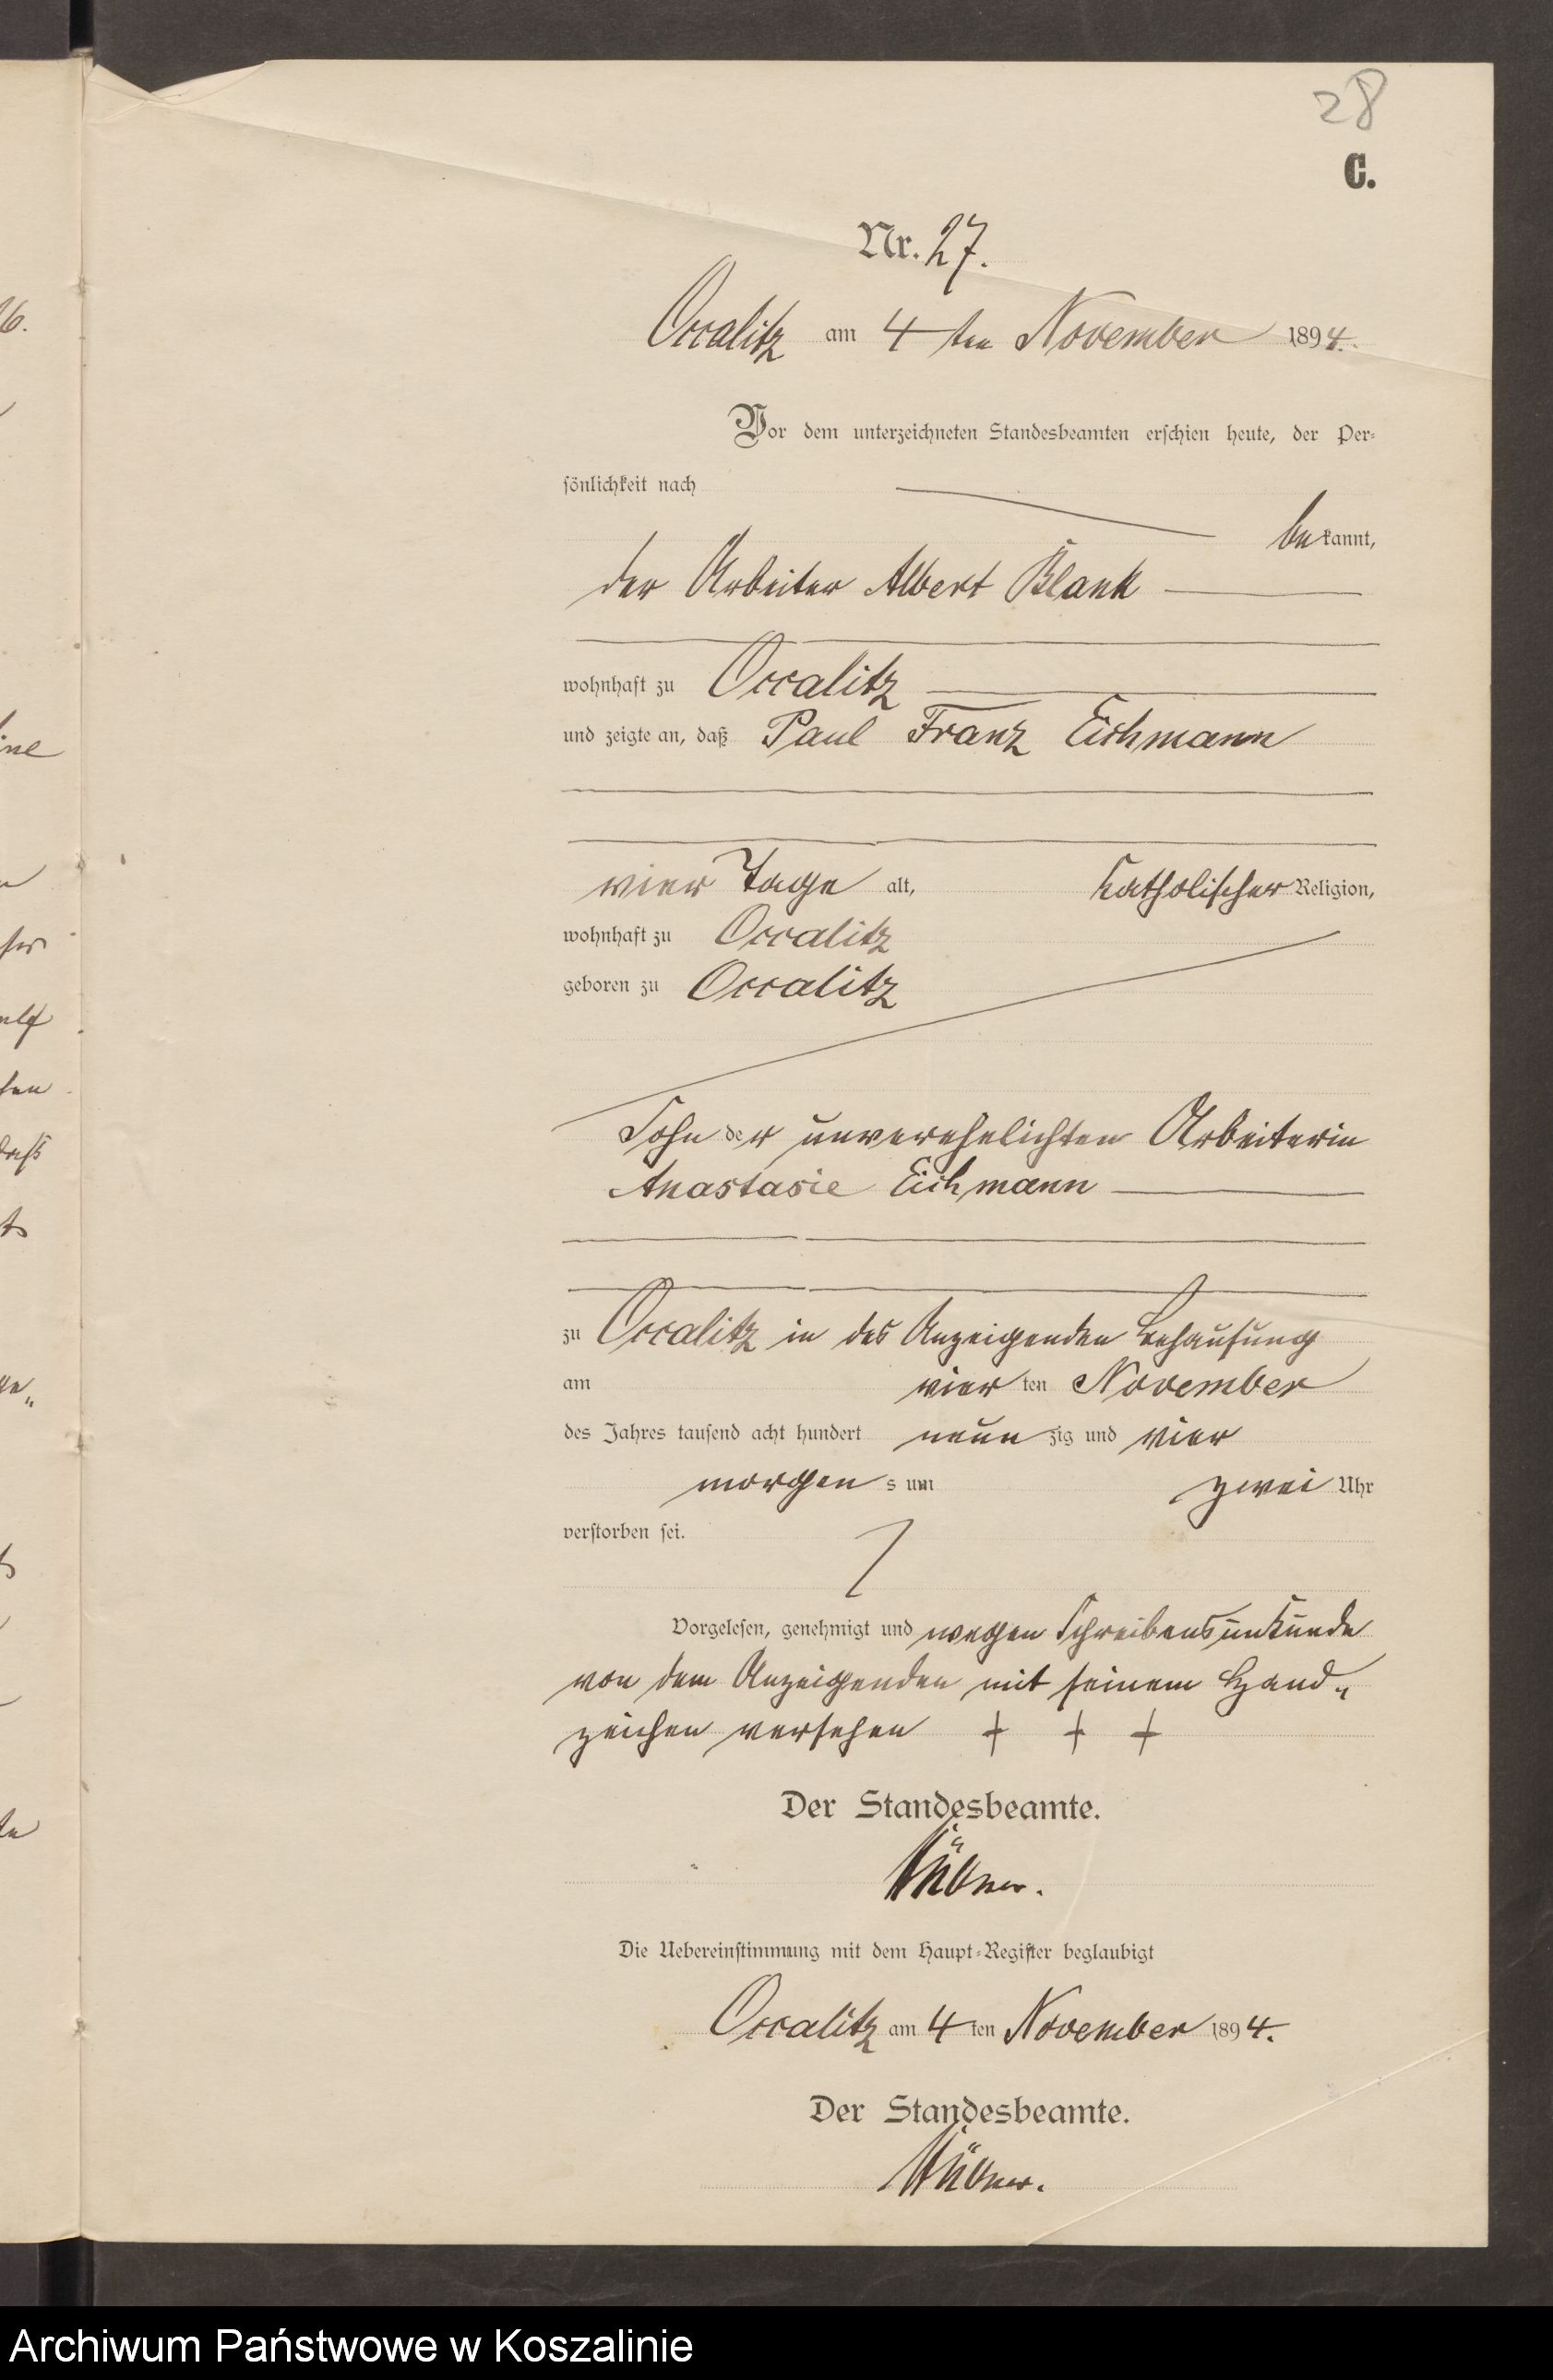 28
C.
Nr. 27.
Occalitz am 4ten November 1894.
Vor dem unterzeichneten Standesbeamten erschien heute, der Per-
sönlichkeit nach
bekannt,
der Arbeiter Albert Blank
wohnhaft zu Occalitz
und zeigte an, daß Paul Franz Eichmann
vier Tage alt, katholischer Religion,
wohnhaft zu Occalitz
geboren zu Occalitz
Sohn der unverehelichten Arbeiterin
Anastasie Eichmann
zu Occalitz in des Anzeigenden Behausung
am vier ten November
des Jahres tausend acht hundert neun zig und vier
morgen s um zwei Uhr
verstorben sei.
Vorgelesen, genehmigt und wegen Schreibensunkunde
von dem Anzeigenden mit seinem Hand„
zeichen versehen + + +
Der Standesbeamte.
Die Uebereinstimmung mit dem Haupt-Register beglaubigt
Occalitz am 4ten November 1894.
Der Standesbeamte.
Archiwum Państwowe w Koszalinie